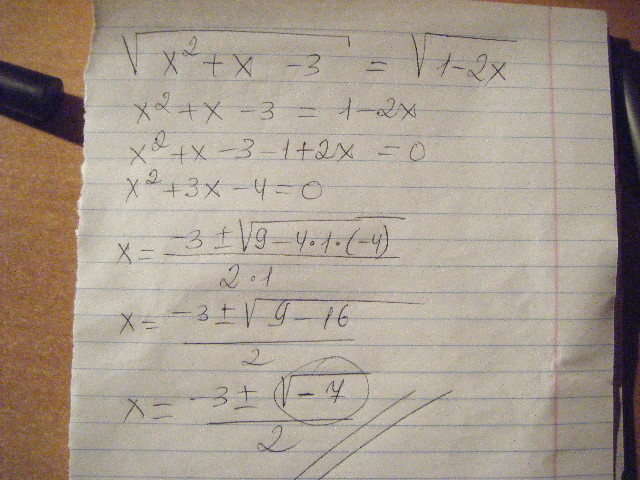 √(x² + x - 3) = √(1-2x)
x² + x - 3 = 1-2x
x² + x - 3 - 1 + 2x = 0
x² + 3x - 4 = 0
x = (-3 ± √(9 - 4·1·(-4))) / (2·1)
x = (-3 ± √(9 - 16)) / 2
x = (-3 ± √(-7)) / 2